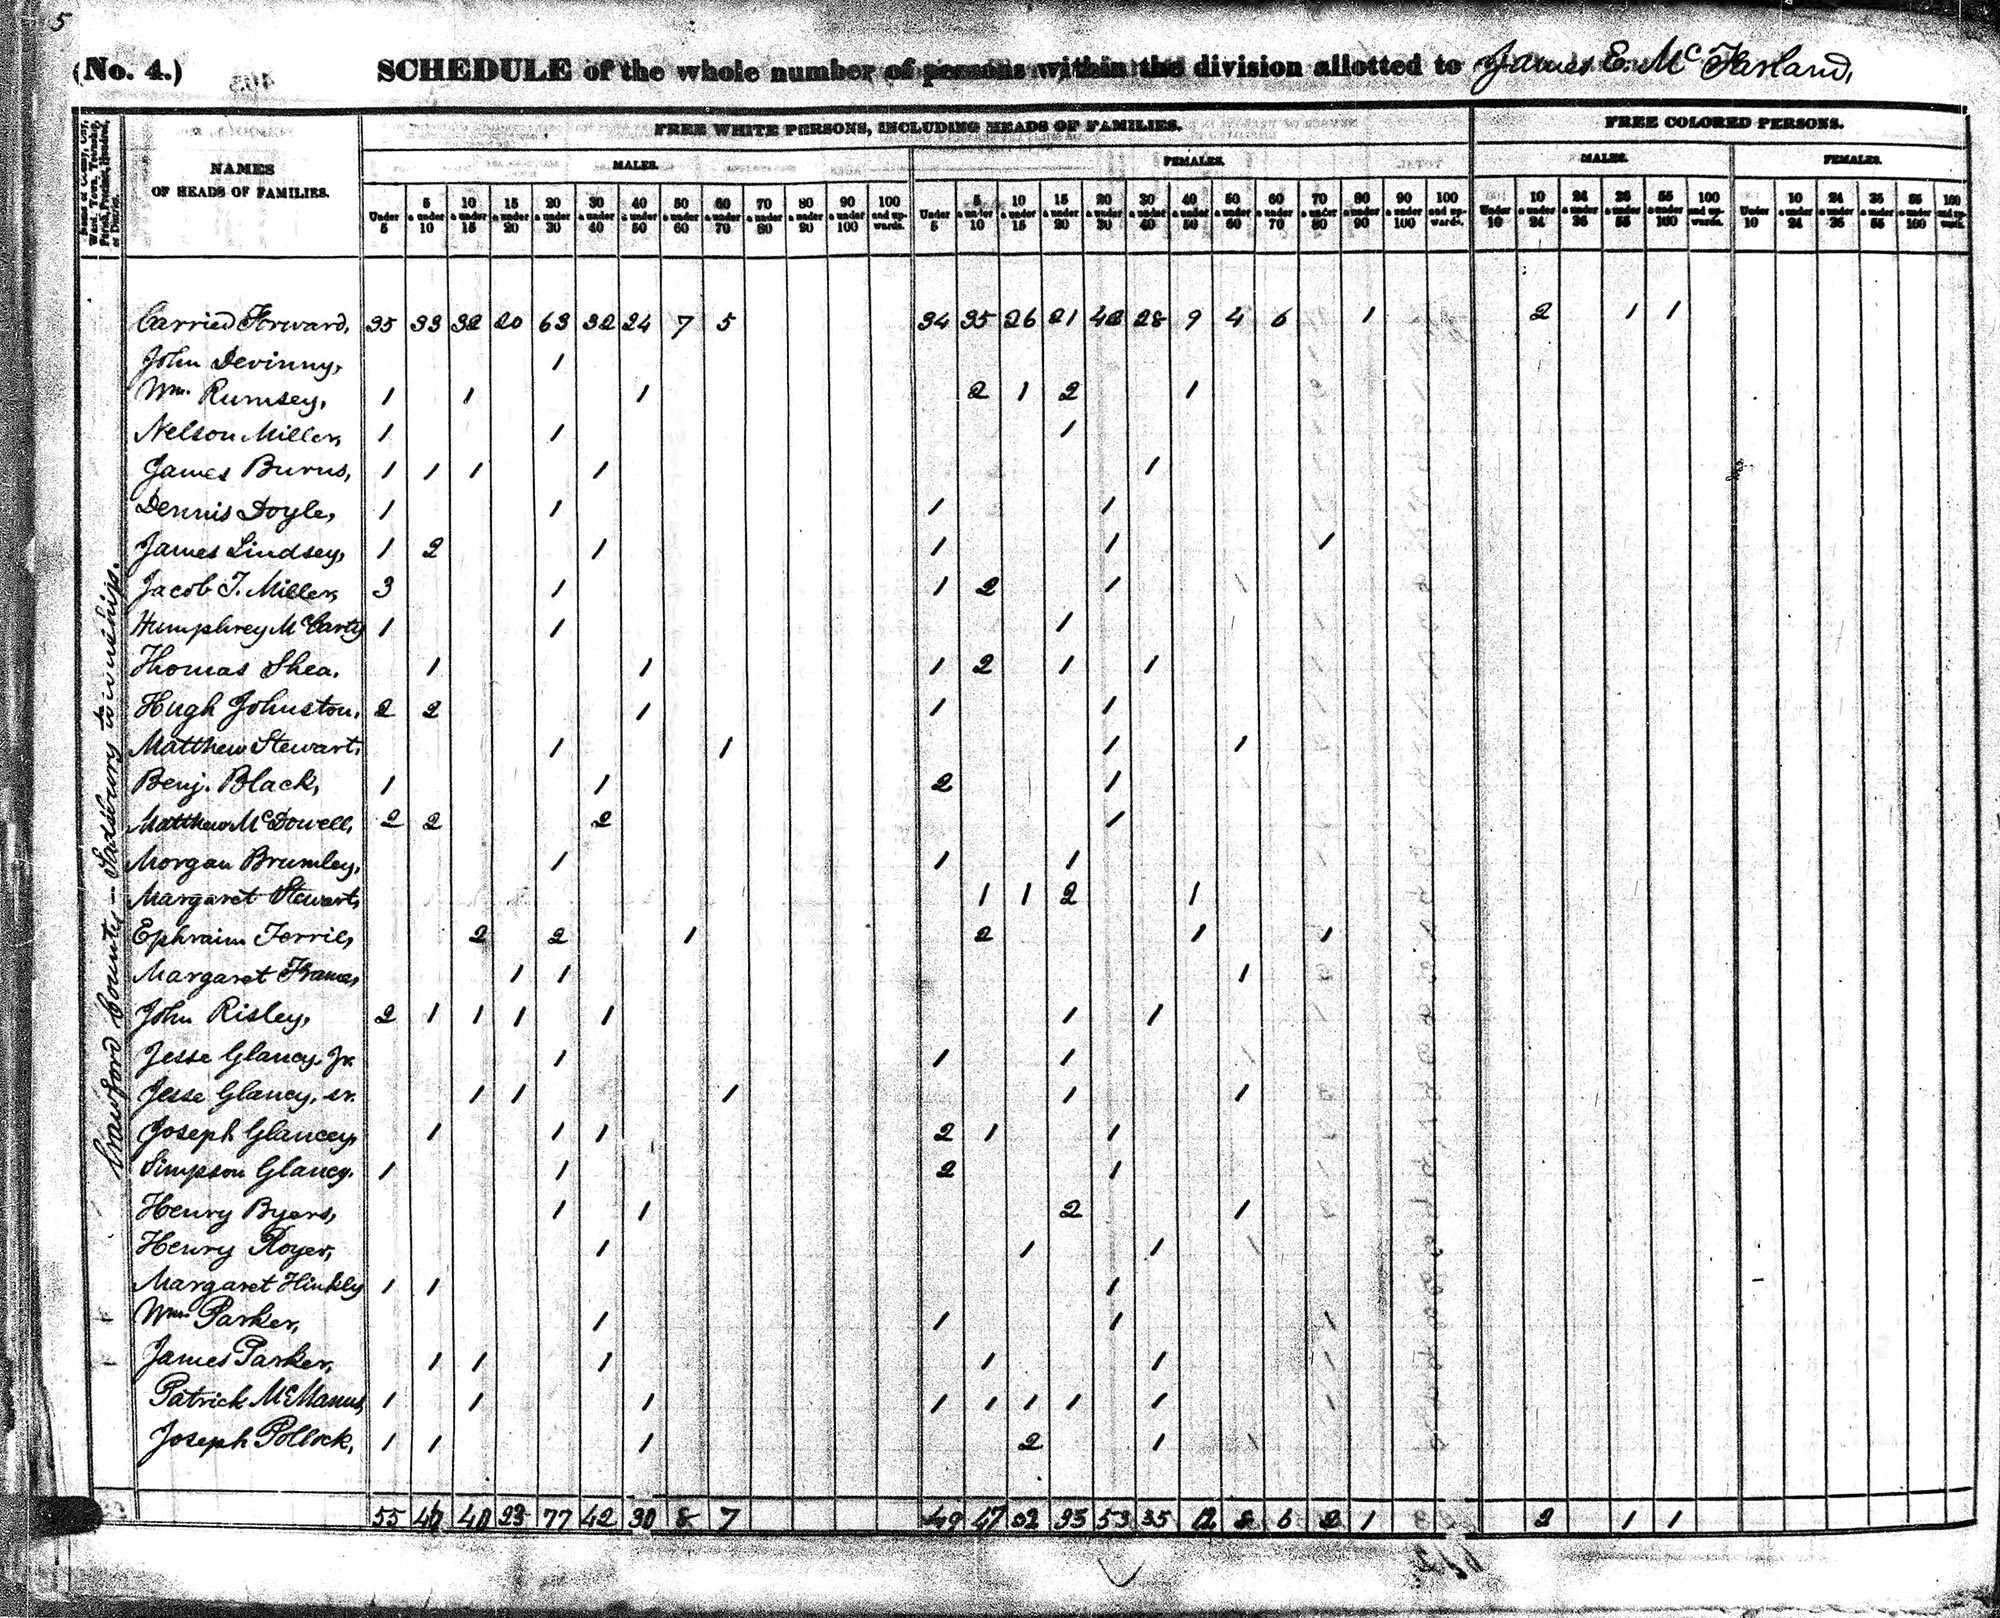 5
(No. 4.) SCHEDULE of the whole number of persons within the division allotted to James E. McFarland,
FREE WHITE PERSONS, INCLUDING HEADS OF FAMILIES. FREE COLORED PERSONS.
MALES. FEMALES. MALES. FEMALES.
Name of County, City, Ward, Town, Township, Parish, Precinct, Hundred, or District.
NAMES OF HEADS OF FAMILIES.
Under 5 5 & under 10 10 & under 15 15 & under 20 20 & under 30 30 & under 40 40 & under 50 50 & under 60 60 & under 70 70 & under 80 80 & under 90 90 & under 100 100 and upwards. Under 5 5 & under 10 10 & under 15 15 & under 20 20 & under 30 30 & under 40 40 & under 50 50 & under 60 60 & under 70 70 & under 80 80 & under 90 90 & under 100 100 and upwards. Under 10 10 & under 24 24 & under 36 36 & under 55 55 & under 100 100 and upwards. Under 10 10 & under 24 24 & under 36 36 & under 55 55 & under 100 100 and upwards.
Crawford County – Sadsbury township.
Carried Forward, 35 33 32 20 63 32 24 7 5 34 35 26 21 42 28 9 4 6 1 2 1 1
John Devinny, 1
Wm. Rumsey, 1 1 1 2 1 2 1
Nelson Miller, 1 1 1
James Burns, 1 1 1 1 1
Dennis Doyle, 1 1 1 1
James Lindsey, 1 2 1 1 1 1
Jacob T. Miller, 3 1 1 2 1
Humphrey McCarty 1 1 1
Thomas Shea, 1 1 1 2 1 1
Hugh Johnston, 2 2 1 1 1
Matthew Stewart, 1 1 1 1
Benj. Black, 1 1 2 1
Matthew McDowell, 2 2 2 1
Morgan Brumley, 1 1 1
Margaret Stewart, 1 1 2 1
Ephraim Terril, 2 2 1 2 1 1
Margaret Frame, 1 1 1
John Risley, 2 1 1 1 1 1 1
Jesse Glancy, Jr. 1 1 1
Jesse Glancy, sr. 1 1 1 1 1
Joseph Glancey, 1 1 1 2 1 1
Simpson Glancy. 1 1 2 1
Henry Byers, 1 1 2 1
Henry Royer, 1 1 1
Margaret Hinkly 1 1 1
Wm. Parker, 1 1 1
James Parker, 1 1 1 1 1
Patrick McManus, 1 1 1 1 1 1 1 1
Joseph Pollock, 1 1 1 2 1
55 40 77 42 30 8 7 49 47 53 35 12 8 6 2 1 2 1 1